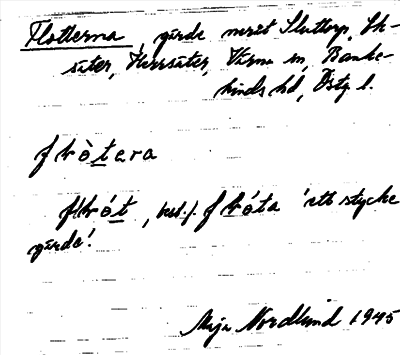 Flotterna, gärde merit Sluttorp, Ek-
säter, Herrsäter, Värna sn, Banke-
kinds hd, Östg. l.
flòtera
flót, best. f. flóta 'ett stycke
gärde'
Maja Nordlund 1945